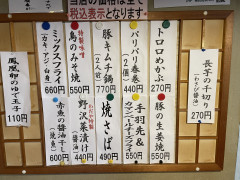 当店の価格は全て
税込表示となります。
長芋の千切り
(わさび醤油)
270円
トロロめかぶ
270円
豚の生姜焼
550円
パリパリ春巻
(2個)
440円
手羽先&
550円
豚キムチ鍋
(2人前)
770円
焼さば
490円
特製味噌
鳥のみそ焼
550円
野沢菜漬け
440円
ミックスフライ
(カキ・アジ・白魚)
660円
赤魚の醤油干し
(焼魚)
550円
鳳凰卵のゆで玉子
110円